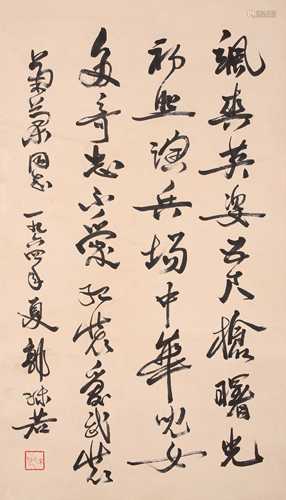 飒爽英姿五尺枪曙光
初照演兵场中华儿女
多奇志不爱红装爱武装
菊兰同志 一九六四年夏 郭沫若